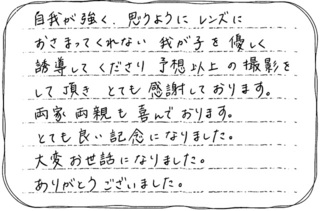 自我が強く、思うように レンズに
おさまってくれない 我が子を 優しく
誘導して くださり 予想以上 の 撮影を
して 頂き とても 感謝しております。
両家 両親も 喜んで おります。
とても 良い 記念に なりました。
大変 お世話に なりました。
ありがとう ございました。